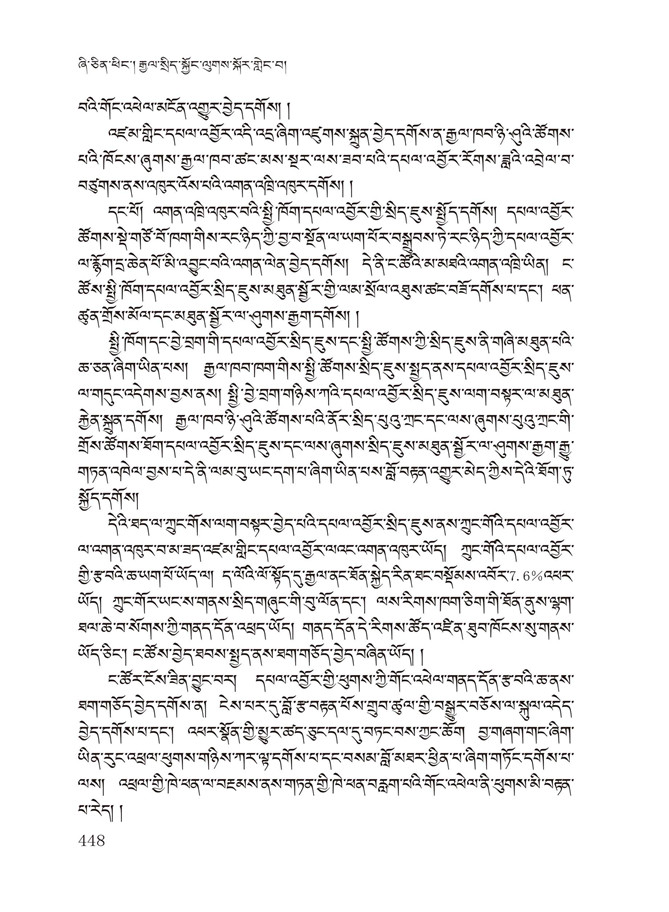 ཞི་ཅིན་ཕིང་། རྒྱལ་སྲིད་སྐྱོང་ལུགས་སྐོར་གླེང་བ།
བའི་གོང་འཕེལ་མངོན་འགྱུར་བྱེད་དགོས། །
འཛམ་གླིང་དཔལ་འབྱོར་འདི་འདྲ་ཞིག་འཛུགས་སྐྲུན་བྱེད་དགོས་ན་རྒྱལ་ཁབ་ཉི་ཤུའི་ཚོགས་
པའི་ཁོངས་ཞུགས་རྒྱལ་ཁབ་ཚང་མས་སྔར་ལས་ཟབ་པའི་དཔལ་འབྱོར་རོགས་ཟླའི་འབྲེལ་བ་
བཙུགས་ནས་འཁུར་འོས་པའི་འགན་འཁྲི་འཁུར་དགོས། །
དང་པོ། འགན་འཁྲི་འཁུར་བའི་སྤྱི་ཁོག་དཔལ་འབྱོར་གྱི་སྲིད་ཇུས་སྤྱོད་དགོས། དཔལ་འབྱོར་
ཚོགས་སྡེ་གཙོ་བོ་ཁག་གིས་རང་ཉིད་ཀྱི་བྱ་བ་སྔོན་ལ་ཡག་པོར་བསྒྲུབས་ཏེ་རང་ཉིད་ཀྱི་དཔལ་འབྱོར་
ལ་རྙོག་དྲ་ཆེན་པོ་མི་འབྱུང་བའི་འགན་ལེན་བྱེད་དགོས། དེ་ནི་ང་ཚོའི་མ་མཐའི་འགན་འཁྲི་ཡིན། ང་
ཚོས་སྤྱི་ཁོག་དཔལ་འབྱོར་སྲིད་ཇུས་མཐུན་སྦྱོར་གྱི་ལམ་སྲོལ་འཐུས་ཚང་བཟོ་དགོས་པ་དང་། ཕན་
ཚུན་གྲོས་མོལ་དང་མཐུན་སྦྱོར་ལ་ཤུགས་རྒྱག་དགོས། །
སྤྱི་ཁོག་དང་བྱེ་བྲག་གི་དཔལ་འབྱོར་སྲིད་ཇུས་དང་སྤྱི་ཚོགས་ཀྱི་སྲིད་ཇུས་ནི་གཞི་མཐུན་པའི་
ཆ་ཅན་ཞིག་ཡིན་པས། རྒྱལ་ཁབ་ཁག་གིས་སྤྱི་ཚོགས་སྲིད་ཇུས་སྤྱད་ནས་དཔལ་འབྱོར་སྲིད་ཇུས་
ལ་གདུང་འདེགས་བྱས་ནས། སྤྱི་བྱེ་བྲག་གཉིས་ཀའི་དཔལ་འབྱོར་སྲིད་ཇུས་ལག་བསྟར་ལ་མཐུན་
རྐྱེན་སྐྲུན་དགོས། རྒྱལ་ཁབ་ཉི་ཤུའི་ཚོགས་པའི་ནོར་སྲིད་པུའུ་ཀྲང་དང་ལས་ཞུགས་པུའུ་ཀྲང་གི་
གྲོས་ཚོགས་ཐོག་དཔལ་འབྱོར་སྲིད་ཇུས་དང་ལས་ཞུགས་སྲིད་ཇུས་མཐུན་སྦྱོར་ལ་ཤུགས་རྒྱག་རྒྱུ་
གཏན་འཁེལ་བྱས་པ་དེ་ནི་ལམ་བུ་ཡང་དག་པ་ཞིག་ཡིན་པས་བློ་བརྟན་འགྱུར་མེད་ཀྱིས་དེའི་ཐོག་ཏུ་
སྐྱོད་དགོས།
དེའི་ཐད་ལ་ཀྲུང་གོས་ལག་བསྟར་བྱེད་པའི་དཔལ་འབྱོར་སྲིད་ཇུས་ནས་ཀྲུང་གོའི་དཔལ་འབྱོར་
ལ་འགན་འཁུར་བ་མ་ཟད་འཛམ་གླིང་དཔལ་འབྱོར་ལའང་འགན་འཁུར་ཡོད། ཀྲུང་གོའི་དཔལ་འབྱོར་
གྱི་རྩ་བའི་ཆ་ཡག་པོ་ཡོད་ལ། ད་ལོའི་ལོ་སྟོད་དུ་རྒྱལ་ནང་ཐོན་སྐྱེད་རིན་ཐང་བསྡོམས་འབོར་7.6%འཕར་
ཡོད། ཀྲུང་གོར་ཡང་ས་གནས་སྲིད་གཞུང་གི་བུ་ལོན་དང་། ལས་རིགས་ཁག་ཅིག་གི་ཐོན་ནུས་ལྷག་
ཐལ་ཆེ་བ་སོགས་ཀྱི་གནད་དོན་འཕྲད་ཡོད། གནད་དོན་དེ་རིགས་ཚོད་འཛིན་ཐུབ་ཁོངས་སུ་གནས་
ཡོད་ཅིང་། ང་ཚོས་བྱེད་ཐབས་སྤྱད་ནས་ཐག་གཅོད་བྱེད་བཞིན་ཡོད། །
ང་ཚོར་ངོས་ཟིན་བྱུང་བར། དཔལ་འབྱོར་གྱི་ཕུགས་ཀྱི་གོང་འཕེལ་གནད་དོན་རྩ་བའི་ཆ་ནས་
ཐག་གཅོད་བྱེད་དགོས་ན། ངེས་པར་དུ་བློ་རྩ་བརྟན་པོས་གྲུབ་ཚུལ་གྱི་བསྒྱུར་བཅོས་ལ་སྐུལ་འདེད་
བྱེད་དགོས་པ་དང་། འཕར་སྣོན་གྱི་མྱུར་ཚད་ཅུང་དལ་དུ་བཏང་བས་ཀྱང་ཆོག བྱ་གཞག་གང་ཞིག་
ཡིན་རུང་འཕྲལ་ཕུགས་གཉིས་ཀར་ལྟ་དགོས་པ་དང་བསམ་བློ་མཐར་ཕྱིན་པ་ཞིག་གཏོང་དགོས་པ་
ལས། འཕྲལ་གྱི་ཁེ་ཕན་ལ་བརྔམས་ནས་གཏན་གྱི་ཁེ་ཕན་བརླག་པའི་གོང་འཕེལ་ནི་ཕུགས་མི་བརྟན་
པ་རེད། །
448